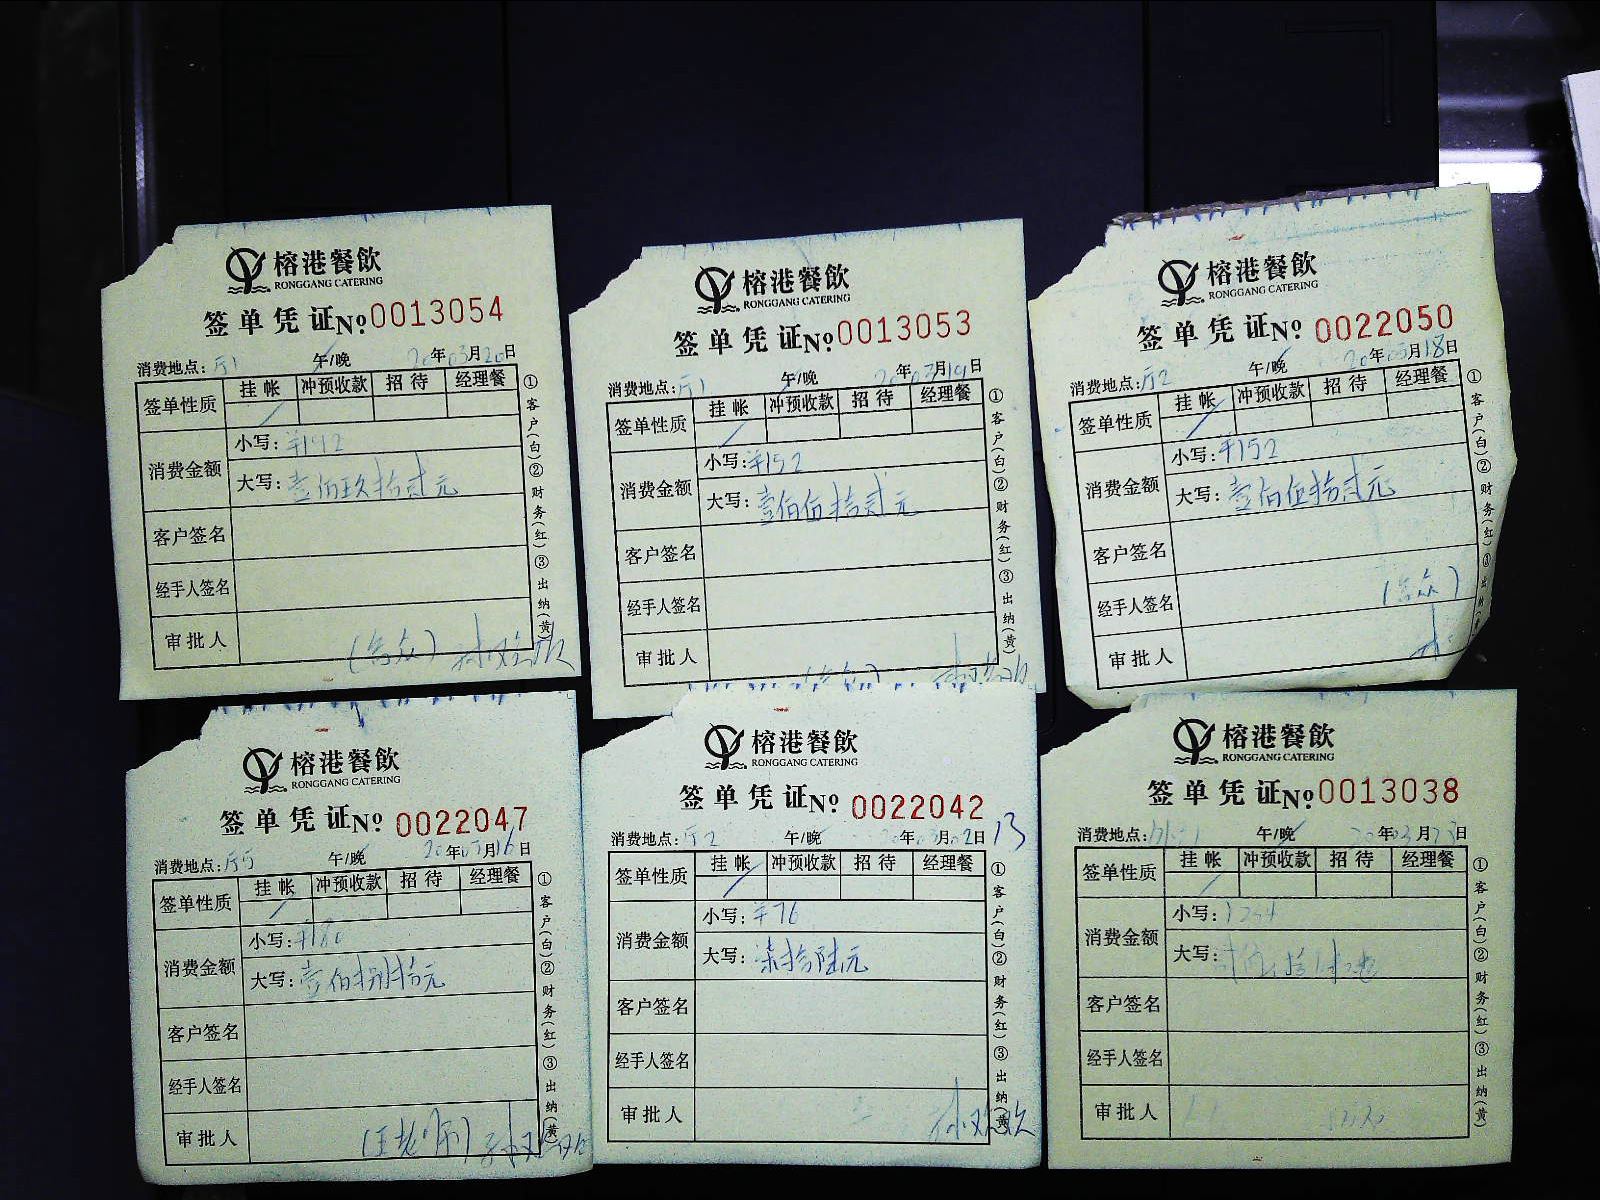 榕港餐飲
RONGGANG CATERING
签单凭证 №0013054
消费地点: 厅1 午/晚 20年03月20日
签单性质 挂帐 冲预收款 招待 经理餐
消费金额 小写: ¥192
大写: 壹佰玖拾贰元
客户签名
经手人签名
审批人
①客户(白)②财务(红)③出纳(黄)
榕港餐飲
RONGGANG CATERING
签单凭证 №0013053
消费地点: 厅1 午/晚 20年03月19日
签单性质 挂帐 冲预收款 招待 经理餐
消费金额 小写: ¥152
大写: 壹佰伍拾贰元
客户签名
经手人签名
审批人
①客户(白)②财务(红)③出纳(黄)
榕港餐飲
RONGGANG CATERING
签单凭证 №0022050
消费地点: 厅2 午/晚 20年03月18日
签单性质 挂帐 冲预收款 招待 经理餐
消费金额 小写: ¥152
大写: 壹佰伍拾贰元
客户签名
经手人签名
审批人
①客户(白)②财务(红)③出纳(黄)
榕港餐飲
RONGGANG CATERING
签单凭证 №0022047
消费地点: 厅5 午/晚 20年03月16日
签单性质 挂帐 冲预收款 招待 经理餐
消费金额 小写: ¥180
大写: 壹佰捌拾元
客户签名
经手人签名
审批人 (王老师)
①客户(白)②财务(红)③出纳(黄)
榕港餐飲
RONGGANG CATERING
签单凭证 №0022042
消费地点: 厅2 午/晚 20年03月02日 13
签单性质 挂帐 冲预收款 招待 经理餐
消费金额 小写: ¥76
大写: 柒拾陆元
客户签名
经手人签名
审批人
①客户(白)②财务(红)③出纳(黄)
榕港餐飲
RONGGANG CATERING
签单凭证 №0013038
消费地点: 午/晚 20年03月 日
签单性质 挂帐 冲预收款 招待 经理餐
消费金额 小写:
大写:
客户签名
经手人签名
审批人
①客户(白)②财务(红)③出纳(黄)